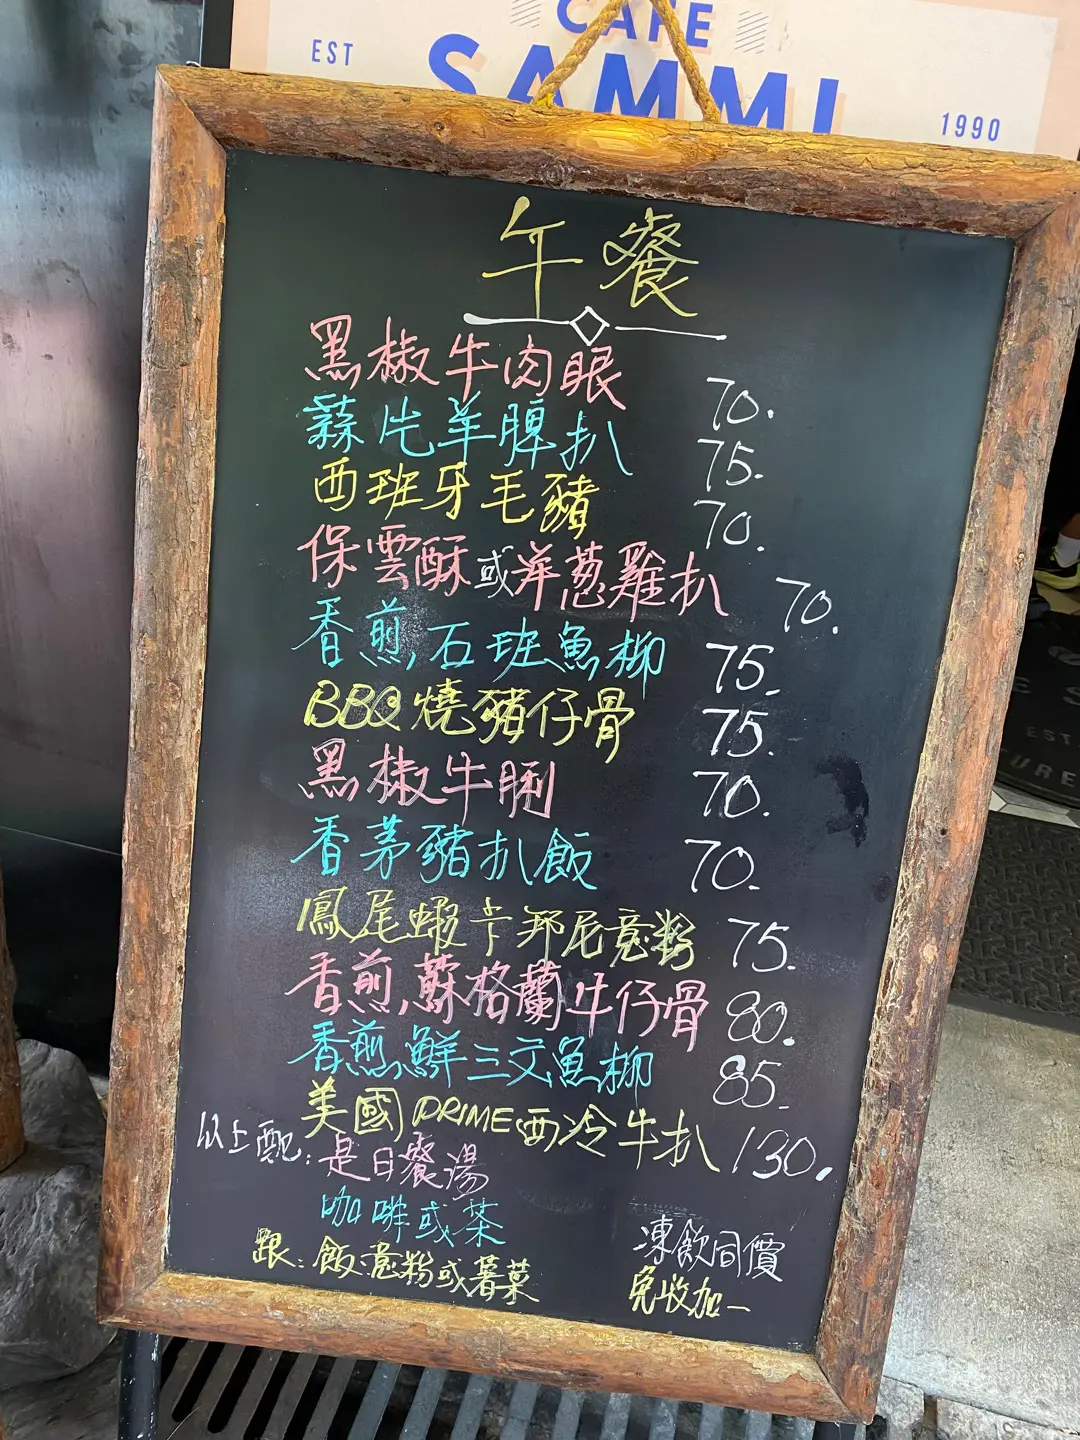 CAFE
SAMMI
EST
1990
午餐
黑椒牛肉眼 70.
蒜片羊脾扒 75.
西班牙毛豬 70.
保雲酥或洋葱雞扒 70.
香煎石班魚柳 75.
BBQ燒豬仔骨 75.
黑椒牛脷 70.
香茅豬扒飯 70.
鳳尾蝦卡邦尼意粉 75.
香煎蘇格蘭牛仔骨 80.
香煎鮮三文魚柳 85.
美國PRIME西冷牛扒 130.
以上配:是日餐湯
咖啡或茶
跟:飯.意粉或薯菓
凍飲同價
免收加一
EST
URE